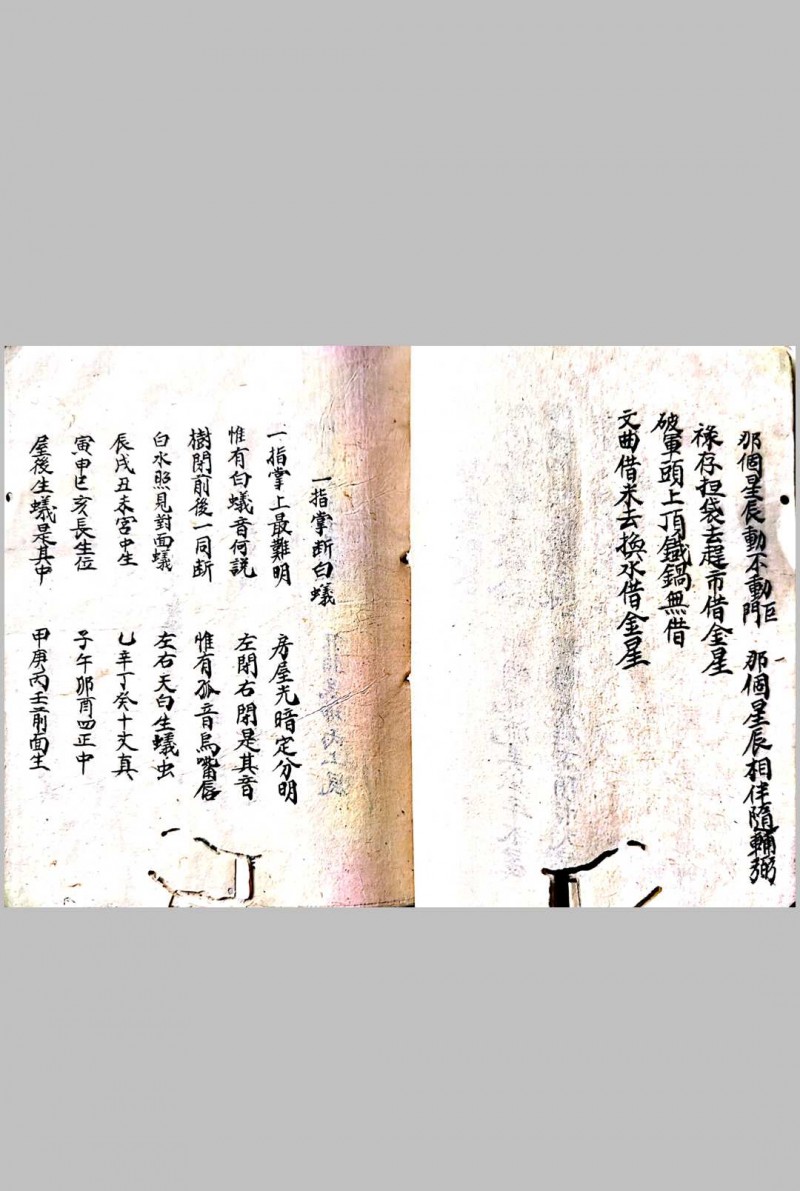 那個星辰動不動巨門 那個星辰相伴隨輔弼
祿存担袋去趕市借金星
破軍頭上頂鐵鍋無借
文曲借米去換水借金星
一指掌断白蟻
一指掌上最難明 房屋光暗定分明
惟有白蟻音何説 左閉右閉是其音
樹閉前後一同断 惟有孤音鳥嘴唇
白水照見對面蟻 左右天白生蟻虫
辰戌丑未宮中生 乙辛丁癸十丈真
寅申巳亥長生位 子午卯酉四正中
屋後生蟻是其中 甲庚丙壬前面生